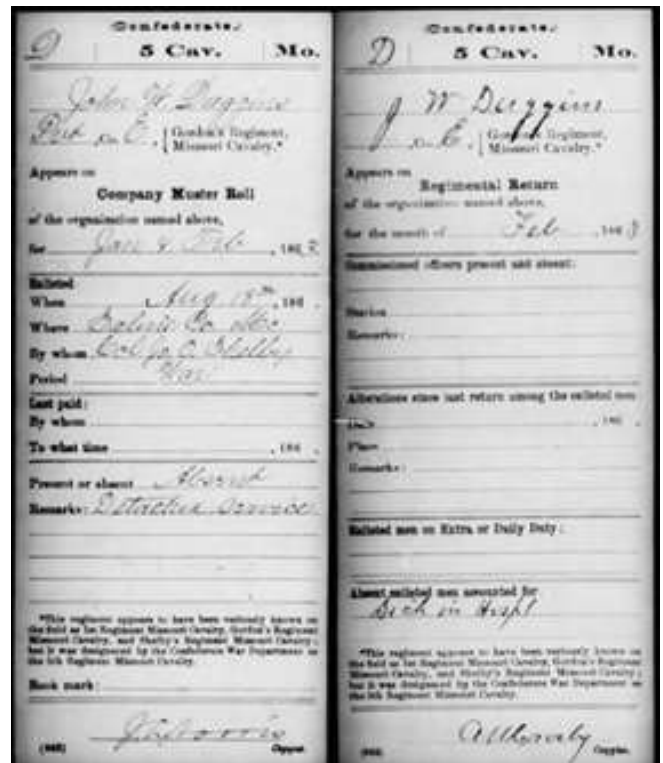 Confederate.
D 5 Cav. Mo.
John W Duggins
Co. E, Gordon's Regiment,
Missouri Cavalry.*
Appears on
Company Muster Roll
of the organization named above,
for Jan & Feb, 186
Enlisted
When Aug 18th, 186
Where Saline Co Mo
By whom Col Jo. O. Shelby
Period War
Last paid:
By whom
To what time , 186 .
Present or absent Absent
Remarks: Detached Service
*This regiment appears to have been variously known on
the field as 1st Regiment Missouri Cavalry, Gordon's Regiment
Missouri Cavalry, and Shelby's Regiment Missouri Cavalry;
but it was designated by the Confederate War Department as
the 5th Regiment Missouri Cavalry.
Book mark:
Copyist.
Confederate.
D 5 Cav. Mo.
J W Duggins
Co. E, Gordon's Regiment,
Missouri Cavalry.*
Appears on
Regimental Return
of the organization named above,
for the month of Feb, 186
Commissioned officers present and absent:
Station
Remarks:
Alterations since last return among the enlisted men
Date , 186 .
Place
Remarks:
Enlisted men on Extra or Daily Duty:
Absent enlisted men accounted for
Sick in Hospt
*This regiment appears to have been variously known on
the field as 1st Regiment Missouri Cavalry, Gordon's Regiment
Missouri Cavalry, and Shelby's Regiment Missouri Cavalry;
but it was designated by the Confederate War Department as
the 5th Regiment Missouri Cavalry.
Copyist.